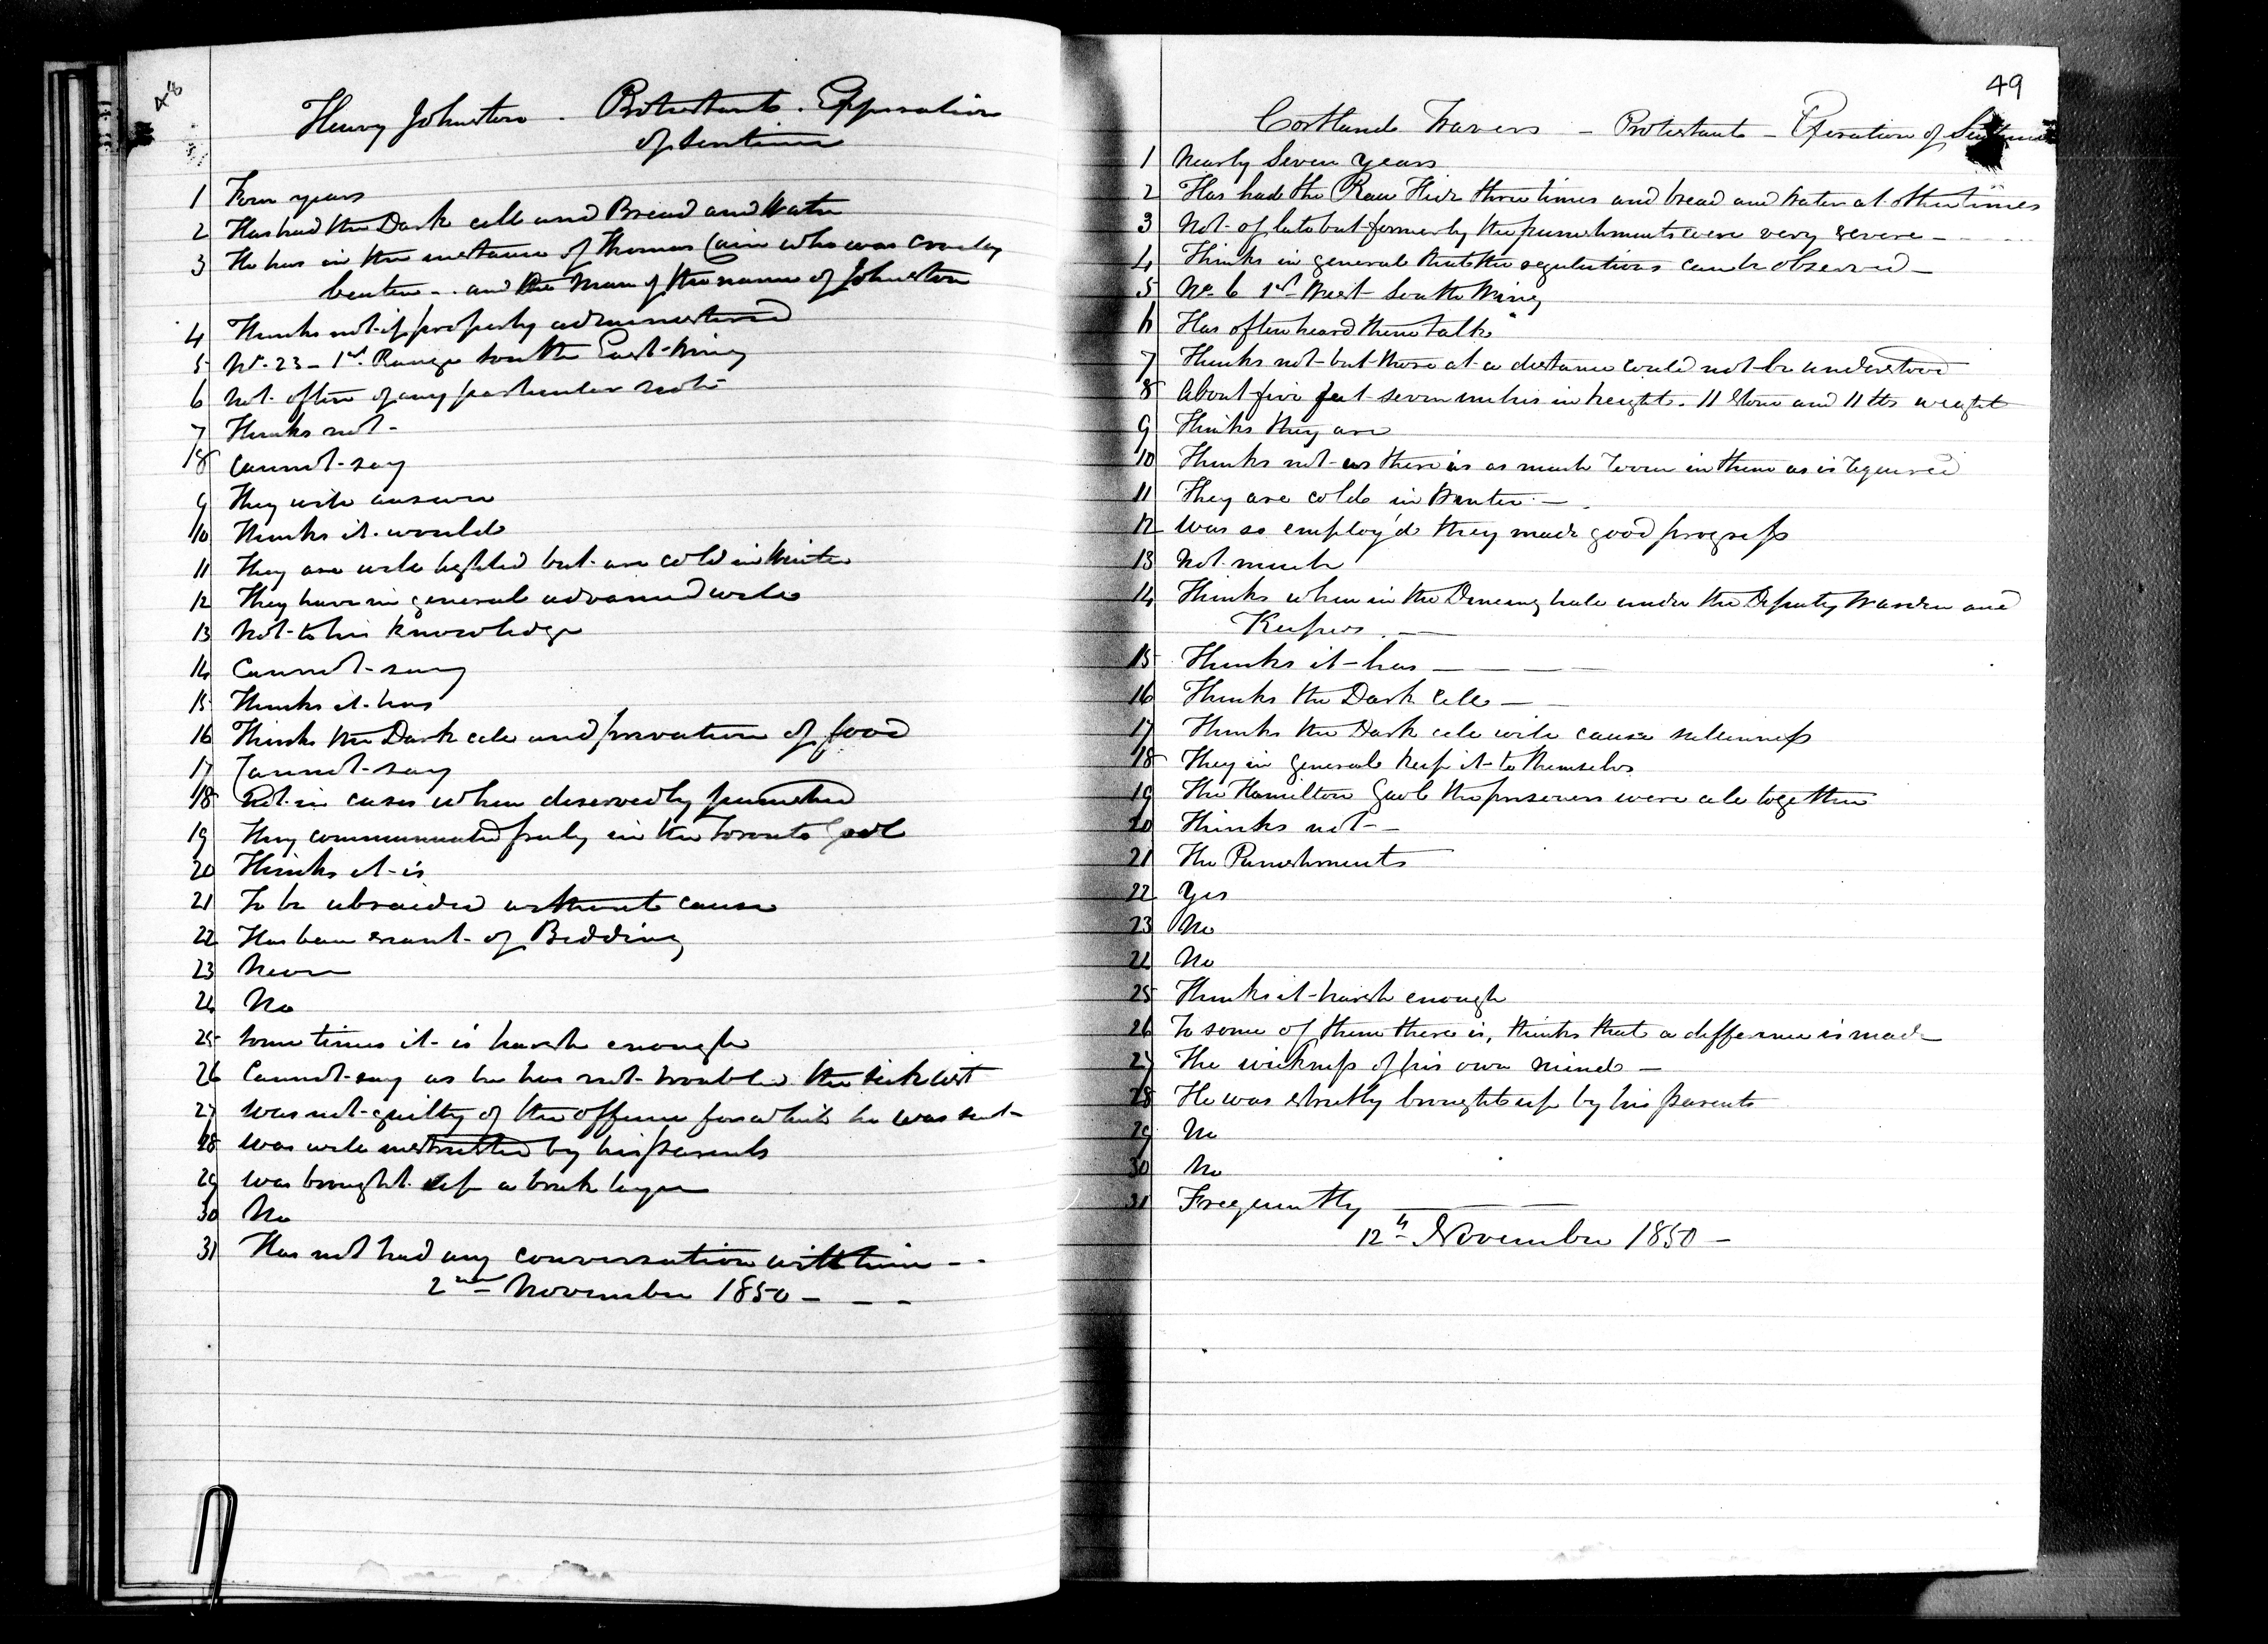 48
Henry Johnston - Protestant - Expiration
of Sentence
1 Four years
2 Has had the Dark cell and Bread and Water
3 He has in the instance of Thomas Cain who was cruelly
beaten - and the man of the name of Johnston
4 Thinks not if properly administered
5 No. 23 - 1st Range South East Wing
6 Not often of any particular note
7 Thinks not -
8 Cannot say
9 They will answer
10 Thinks it would
11 They are well lighted but are cold in Winter
12 They have in general advanced well
13 Not to his knowledge
14 Cannot say
15 Thinks it has
16 Thinks the Dark cell and privation of food
17 Cannot say
18 Not in cases when deservedly punished
19 They communicated freely in the Toronto Gaol
20 Thinks it is
21 To be upbraided without cause
22 Has been scant of Bedding
23 Never
24 No
25 Sometimes it is harsh enough
26 Cannot say as he has not troubled the sick list
27 Was not guilty of the offence for which he was sent
28 Was well instructed by his parents
29 Was brought up a brick layer
30 No
31 Has not had any conversation with him - -
2nd November 1850 - - -
49
Cortland Travers - Protestant - Expiration of Sentence
1 Nearly Seven years
2 Has had the Raw Hide three times and bread and water at other times
3 Not of late but formerly the punishments were very severe -
4 Thinks in general that the regulations can be observed -
5 No. 6 1st West South Wing
6 Has often heard them talk
7 Thinks not but those at a distance could not be understood
8 About five feet seven inches in height. 11 Stone and 11 lbs weight
9 Thinks they are
10 Thinks not as there is as much room in them as is required
11 They are cold in Winter -
12 Was so employ'd they made good progress
13 Not much
14 Thinks when in the Dining hall under the Deputy Warden and
Keepers -
15 Thinks it has - - - -
16 Thinks the Dark Cell - -
17 Thinks the Dark cell will cause sullenness
18 They in general keep it to themselves
19 The Hamilton Gaol the prisoners were all together
20 Thinks not -
21 The Punishments
22 Yes
23 No
24 No
25 Thinks it harsh enough
26 To some of them there is, thinks that a difference is made
27 The weakness of his own mind -
28 He was strictly brought up by his parents
29 No
30 No
31 Frequently - - -
12th November 1850 -